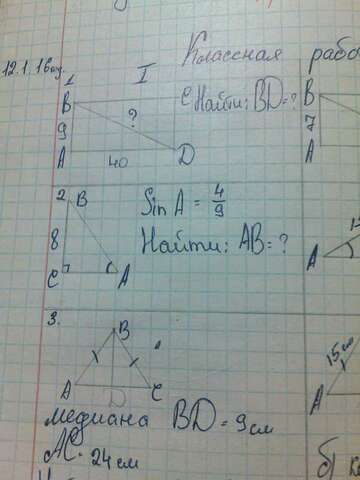 Классная рабо
12.1. 1вар.
1
I
B
C
Найти: BD=?
9
?
A
40
D
B
7
A
2
B
8
C
A
Sin A = 4/9
Найти: AB=?
A
3.
B
A
D
C
15 см
A
медиана BD = 9 см
AC = 24 см
б)